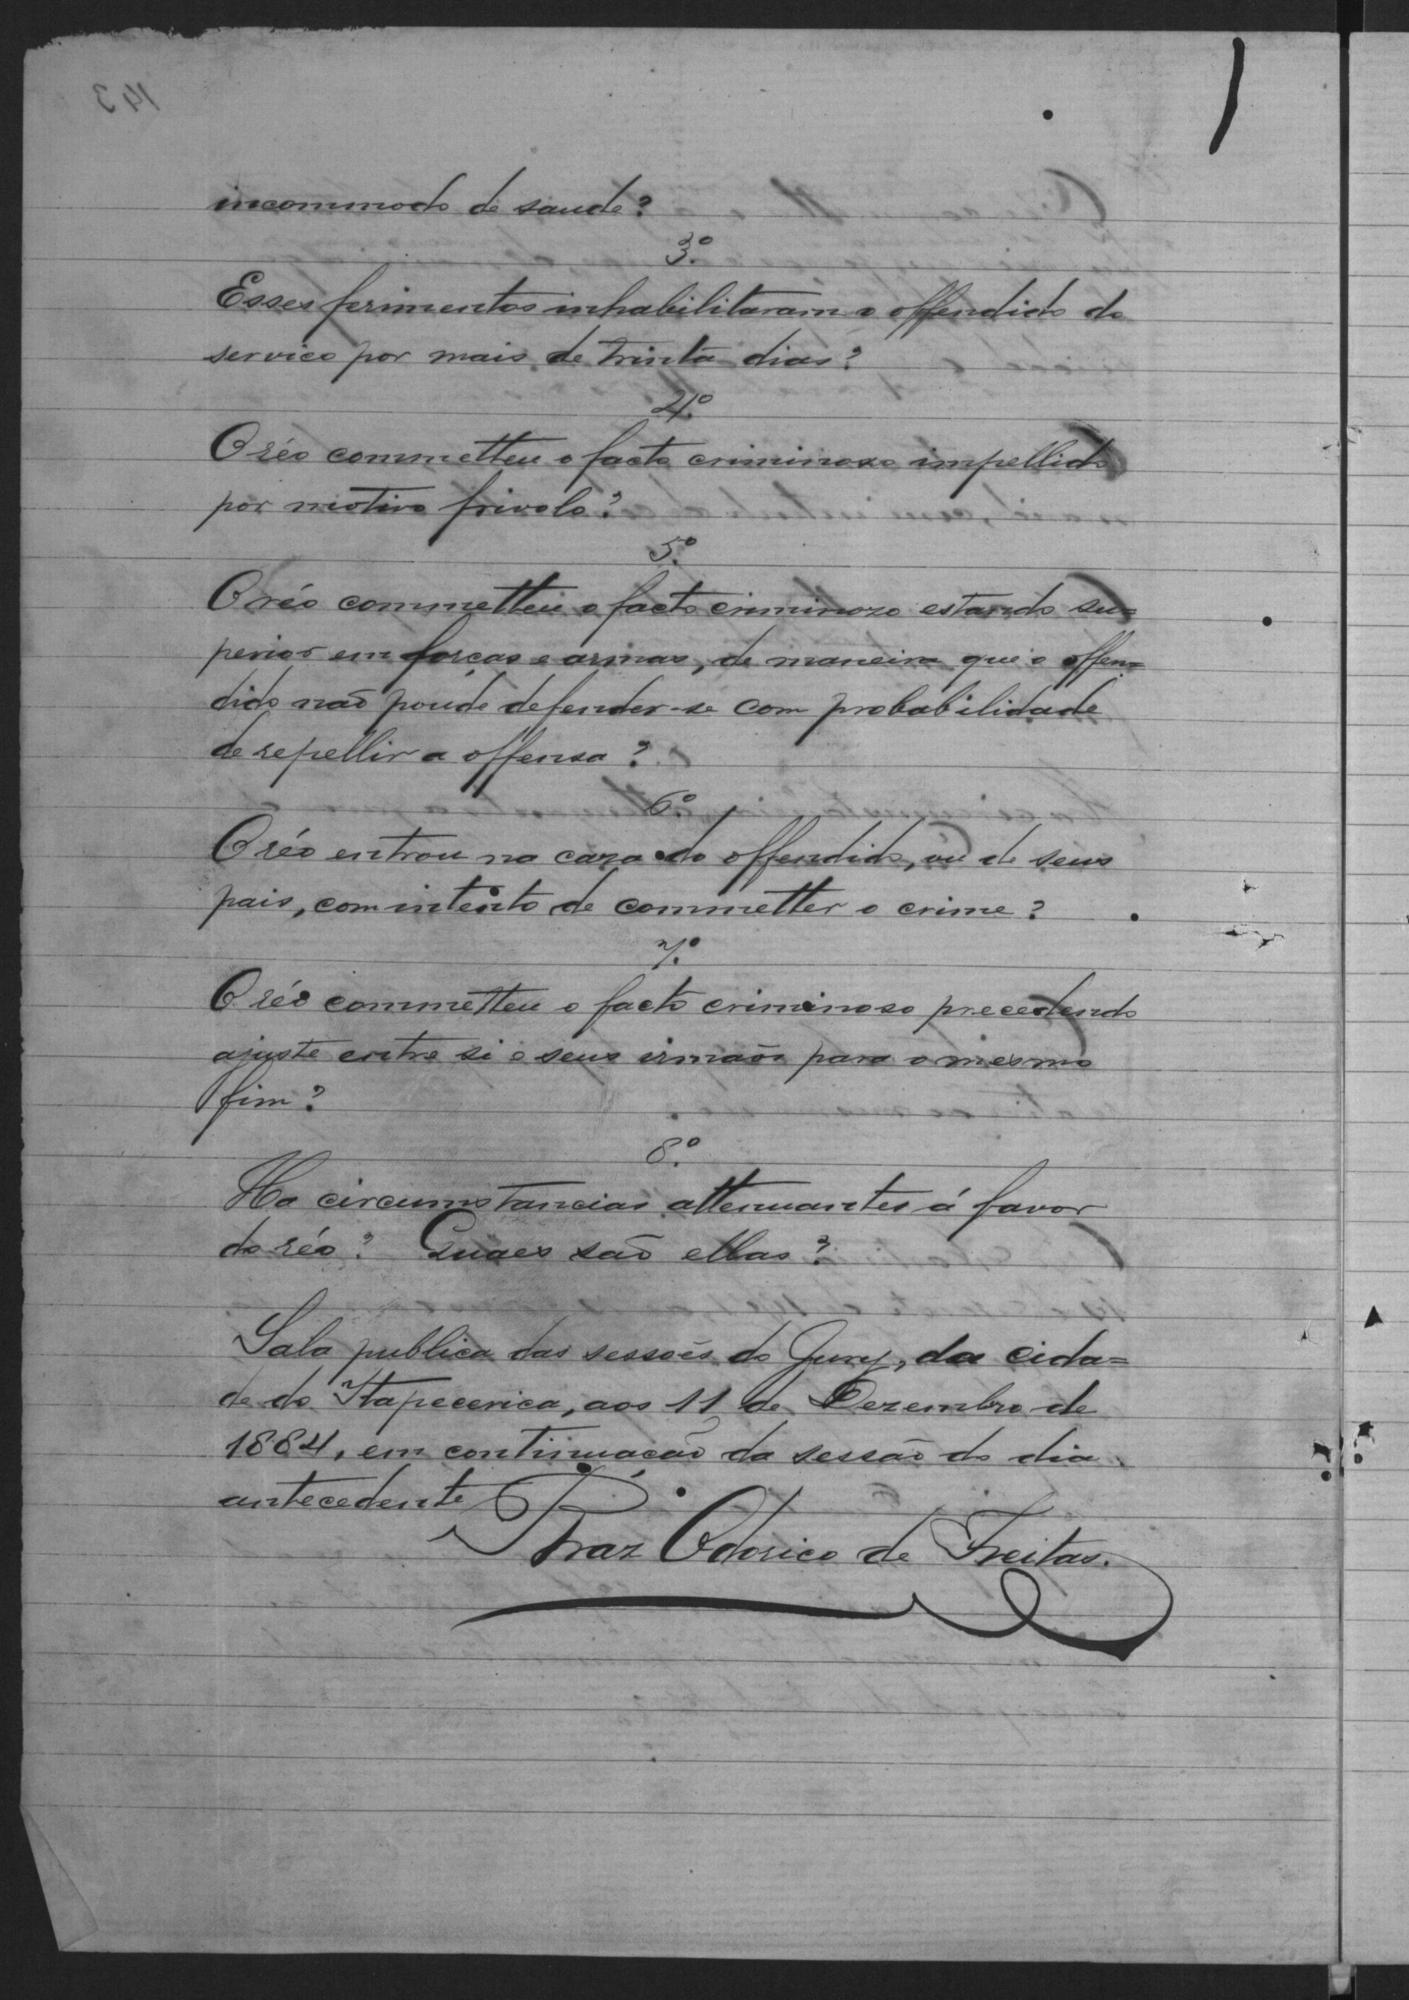 incommodo de saude?
3.º
Esses ferimentos inhabilitaram o offendido do
serviço por mais de trinta dias?
4.º
O réo commetteu o facto criminoso impellido
por motivo frivolo?
5.º
O réo commetteu o facto criminozo estando su=
perior em forças e armas, de maneira que o offen=
dido não poude defender-se com probabilidade
de repellir a offensa?
6.º
O réo entrou na caza do offendido, ou de seus
pais, com intento de commetter o crime?
7.º
O réo commetteu o facto criminoso precedendo
ajuste entre si e seus irmãos para o mesmo
fim?
8.º
Ha circumstancias attenuantes á favor
do réo? Quaes são ellas?
Sala publica das sessoẽs do Jury, da cida=
de do Itapecerica, aos 11 de Dezembro de
1884, em continuação da sessão do dia
antecedente
Braz Odorico de Freitas.